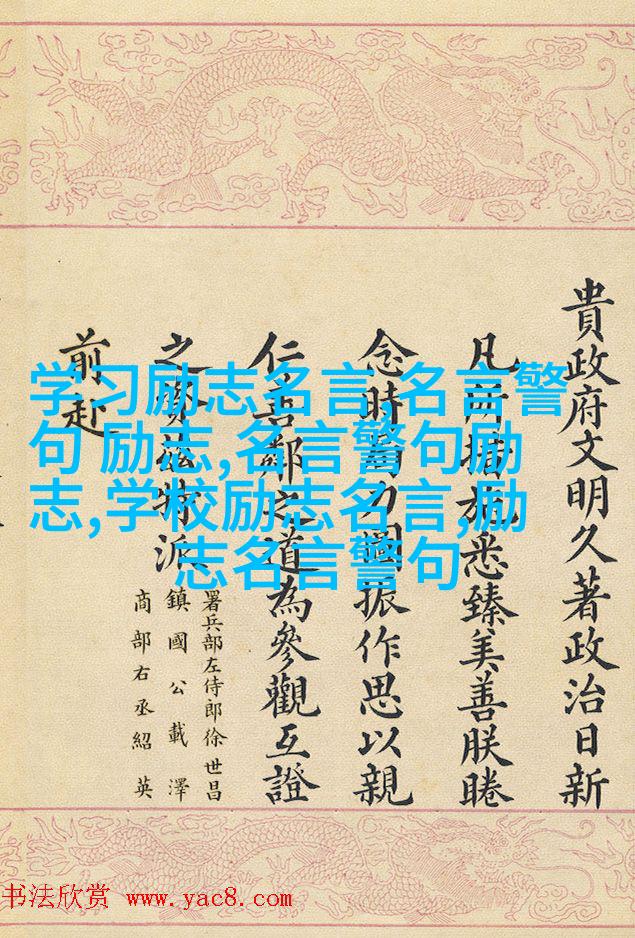 貴政府文明久著政治日新
凡所措施悉臻美善朕睠
念時局力圖振作思以親
仁善鄰之道為參觀互證
之資茲特派
署兵部左侍郎徐世昌
鎮國公載澤
商部右丞紹英
前赴
学习励志名言,名言警
句 励志,名言警句励
志,学校励志名言,励
志名言警句
书法欣赏 www.yac8.com